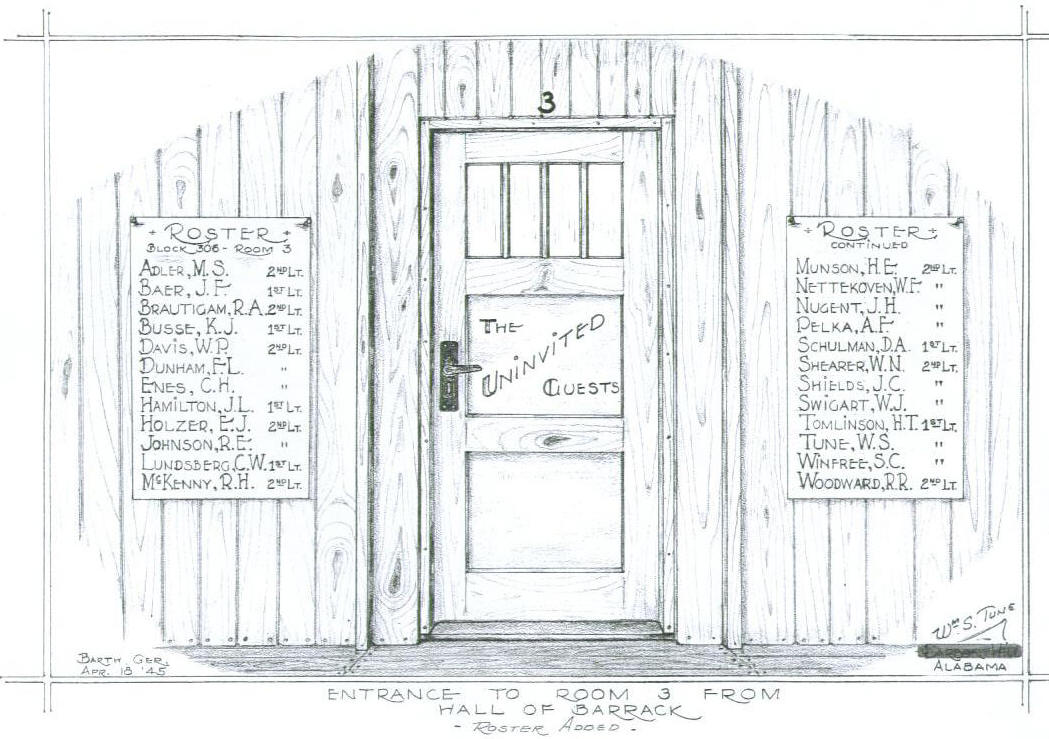 3
+ ROSTER +
BLOCK 306 - ROOM 3
ADLER, M.S. 2ND LT.
BAER, J.F. 1ST LT.
BRAUTIGAM, R.A. 2ND LT.
BUSSE, K.J. 1ST LT.
DAVIS, W.P. 2ND LT.
DUNHAM, F.L. "
ENES, C.H. "
HAMILTON, J.L. 1ST LT.
HOLZER, E.J. 2ND LT.
JOHNSON, R.E. "
LUNDSBERG, C.W. 1ST LT.
McKENNY, R.H. 2ND LT.
THE
UNINVITED
GUESTS
+ ROSTER +
CONTINUED
MUNSON, H.E. 2ND LT.
NETTEKOVEN, W.F. "
NUGENT, J.H. "
PELKA, A.F. "
SCHULMAN, D.A. 1ST LT.
SHEARER, W.N. 2ND LT.
SHIELDS, J.C. "
SWIGART, W.J. "
TOMLINSON, H.T. 1ST LT.
TUNE, W.S. "
WINFREE, S.C. "
WOODWARD, R.R. 2ND LT.
BARTH, GER.
APR. 18 '45
WM S. TUNE
ALABAMA
ENTRANCE TO ROOM 3 FROM
HALL OF BARRACK
- ROSTER ADDED -